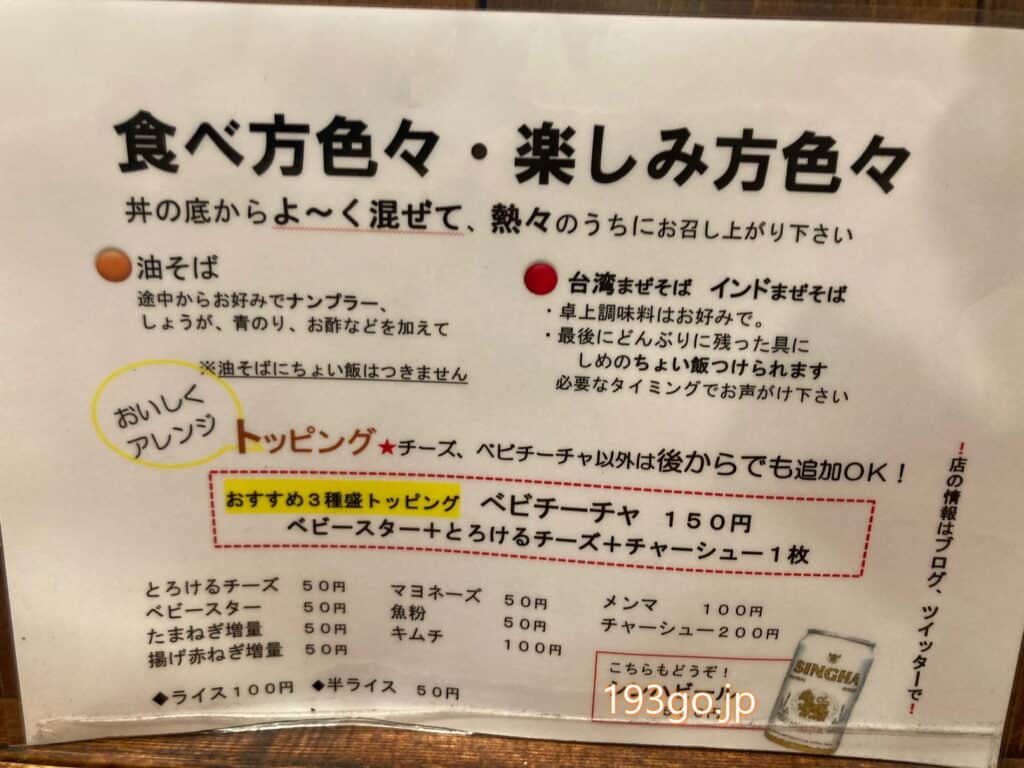 食べ方色々・楽しみ方色々
丼の底からよ～く混ぜて、熱々のうちにお召し上がり下さい
油そば
途中からお好みでナンプラー、
しょうが、青のり、お酢などを加えて
※油そばにちょい飯はつきません
台湾まぜそば インドまぜそば
・卓上調味料はお好みで。
・最後にどんぶりに残った具に
しめのちょい飯つけられます
必要なタイミングでお声がけ下さい
おいしく
アレンジ
トッピング★チーズ、ベビチーチャ以外は後からでも追加OK！
おすすめ３種盛トッピング ベビチーチャ １５０円
ベビースター＋とろけるチーズ＋チャーシュー１枚
とろけるチーズ ５０円
ベビースター ５０円
たまねぎ増量 ５０円
揚げ赤ねぎ増量 ５０円
マヨネーズ ５０円
魚粉 ５０円
キムチ １００円
メンマ １００円
チャーシュー２００円
◆ライス１００円 ◆半ライス ５０円
こちらもどうぞ！
SINGHA
193go.jp
！店の情報はブログ、ツイッターで！